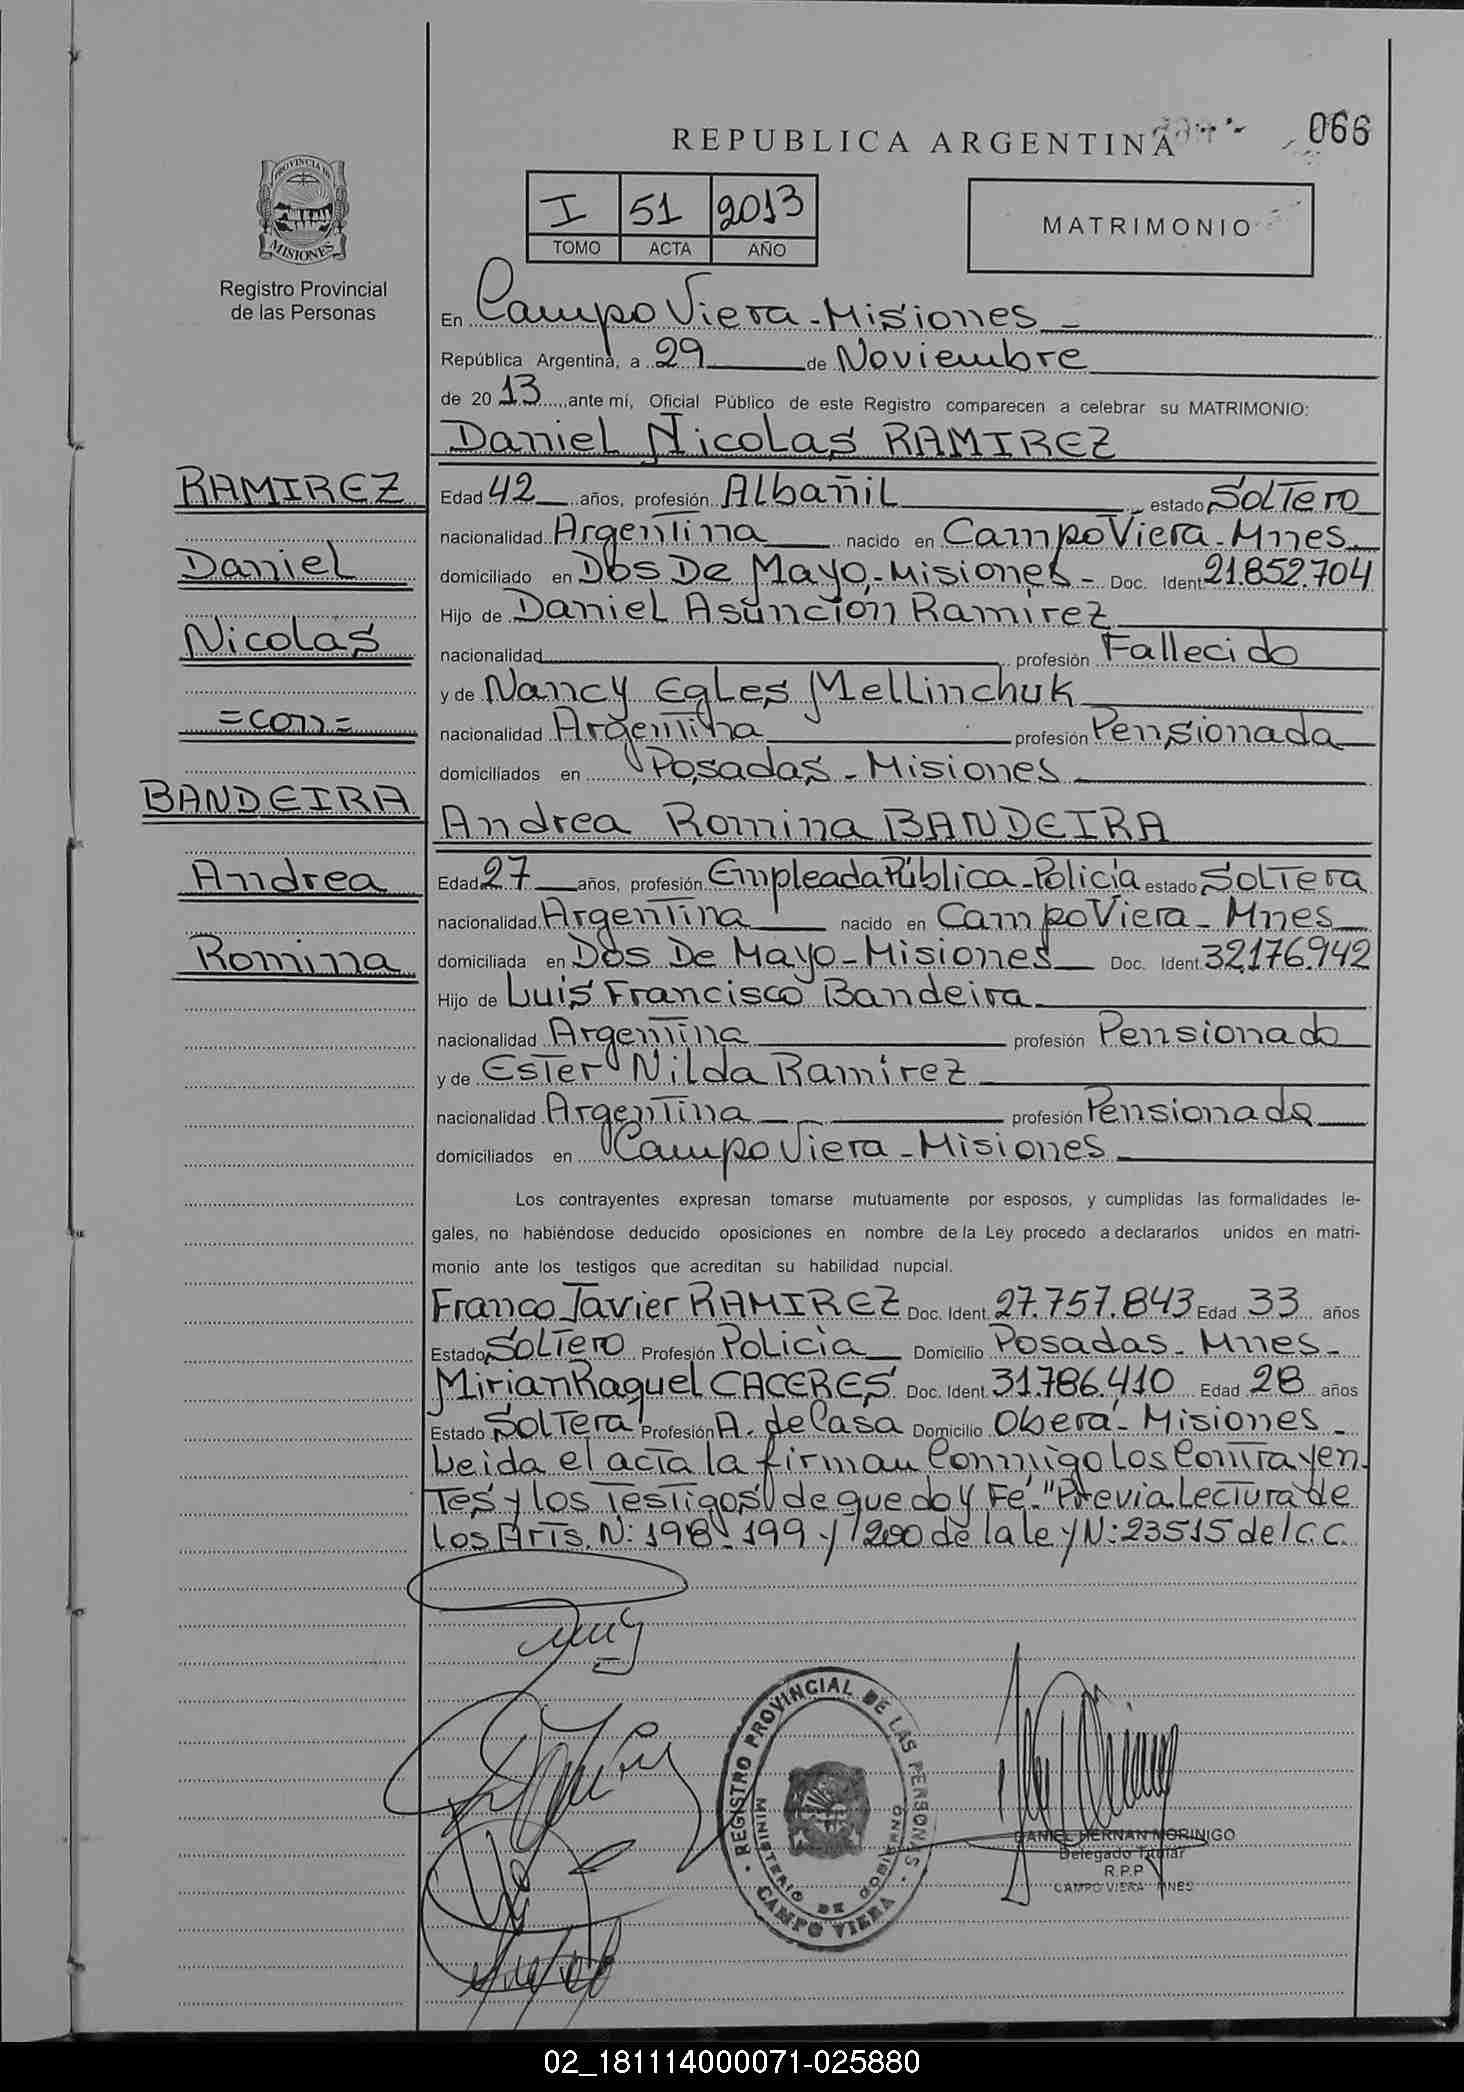 REPUBLICA ARGENTINA
066
PROVINCIA DE
MISIONES
Registro Provincial
de las Personas
I 51 2013
TOMO ACTA AÑO
MATRIMONIO
En Campo Viera - Misiones -
República Argentina, a 29 de Noviembre
de 2013 ante mí, Oficial Público de este Registro comparecen a celebrar su MATRIMONIO:
Daniel Nicolas RAMIREZ
RAMIREZ
Daniel
Nicolas
=con=
BANDEIRA
Andrea
Romina
Edad 42 años, profesión Albañil estado Soltero
nacionalidad Argentina nacido en Campo Viera - Mnes
domiciliado en Dos De Mayo - Misiones - Doc. Ident. 21.852.704
Hijo de Daniel Asunción Ramirez
nacionalidad profesión Fallecido
y de Nancy Egles Mellinchuk
nacionalidad Argentina profesión Pensionada
domiciliados en Posadas - Misiones
Andrea Romina BANDEIRA
Edad 27 años, profesión Empleada Pública - Policía estado Soltera
nacionalidad Argentina nacido en Campo Viera - Mnes
domiciliada en Dos De Mayo - Misiones Doc. Ident. 32.176.942
Hijo de Luis Francisco Bandeira
nacionalidad Argentina profesión Pensionado
y de Ester Nilda Ramirez
nacionalidad Argentina profesión Pensionada
domiciliados en Campo Viera - Misiones
Los contrayentes expresan tomarse mutuamente por esposos, y cumplidas las formalidades le-
gales, no habiéndose deducido oposiciones en nombre de la Ley procedo a declararlos unidos en matri-
monio ante los testigos que acreditan su habilidad nupcial.
Franco Javier RAMIREZ Doc. Ident. 27.757.843 Edad 33 años
Estado Soltero Profesión Policia Domicilio Posadas - Mnes -
Mirian Raquel CACERES Doc. Ident. 31.786.410 Edad 28 años
Estado Soltera Profesión A. de Casa Domicilio Oberá - Misiones -
Leida el acta la firman Conmigo Los Contrayen
tes y los Testigos de que doy Fé. "Previa Lectura de
los Arts. N: 198 - 199 y 200 de la ley N: 23515 del C.C.
REGISTRO PROVINCIAL DE LAS PERSONAS
MINISTERIO DE GOBIERNO
CAMPO VIERA
DANIEL HERNAN MORINIGO
Delegado Titular
R.P.P
CAMPO VIERA MNES
02_181114000071-025880